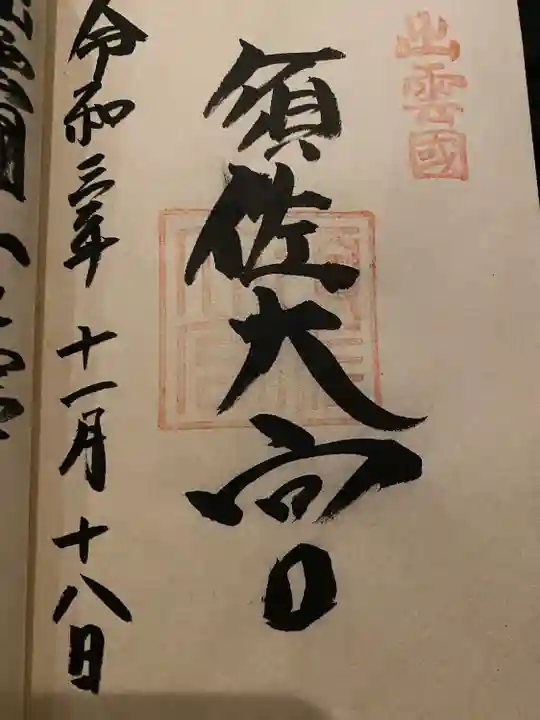 出雲國
須佐大宮
令和三年 十一月 十八日